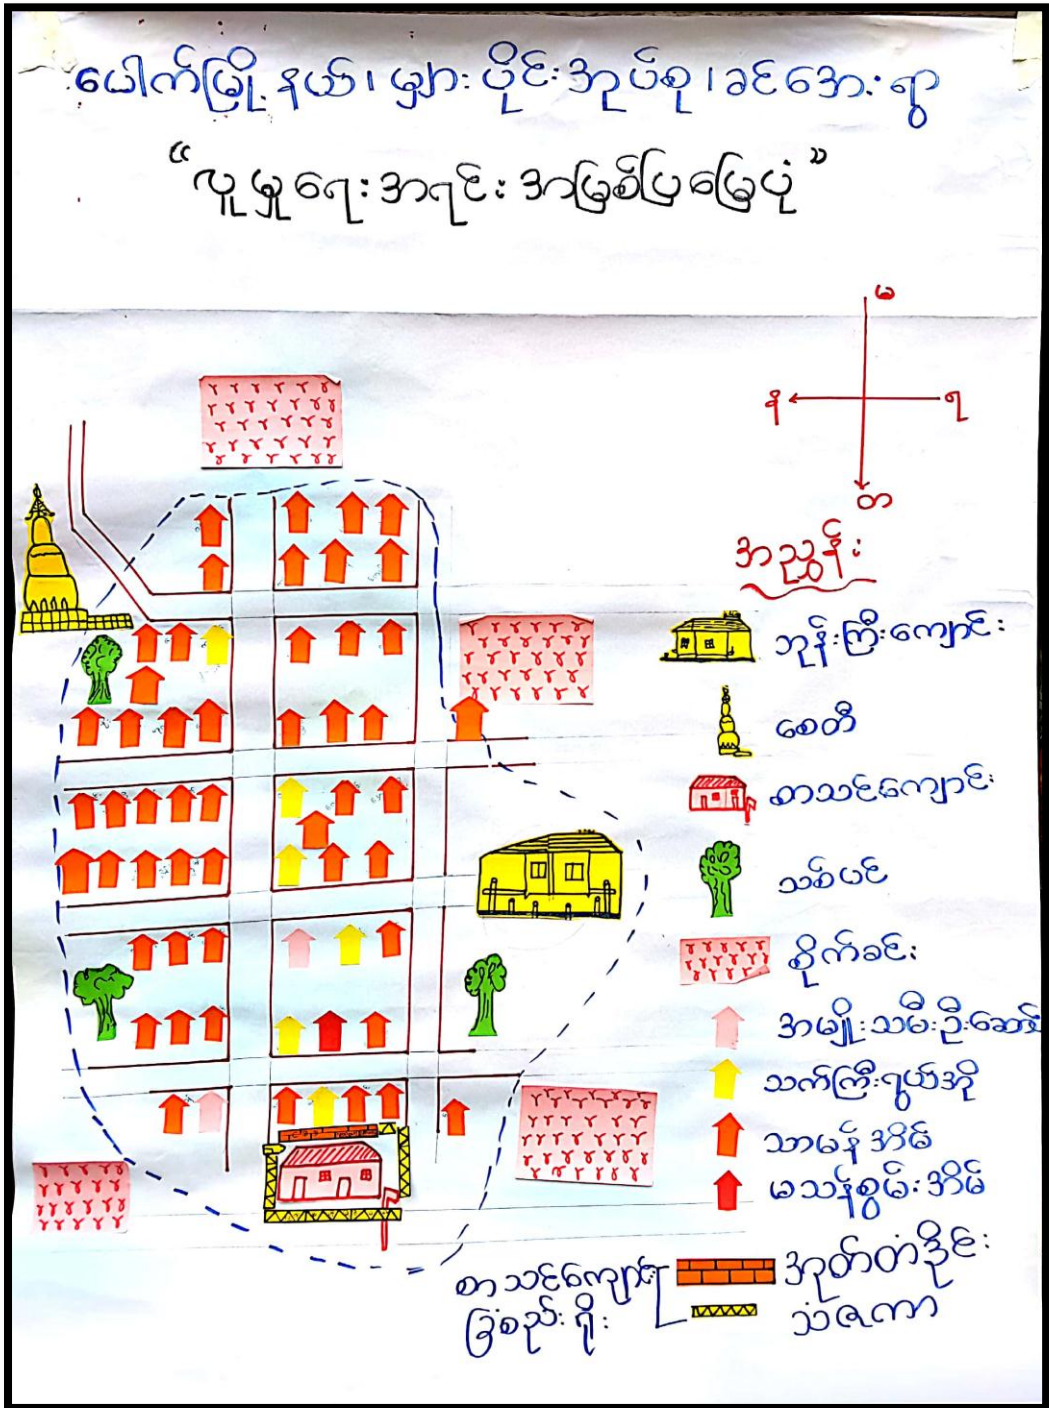 ပေါက်မြို့နယ်၊ မျှားပိုင်းအုပ်စု၊ ခင်အေးရွာ
“လူမှုရေးအရင်းအမြစ်ပြမြေပုံ”
မ
န
ရ
တ
အညွှန်း
ဘုန်းကြီးကျောင်း
စေတီ
စာသင်ကျောင်း
သစ်ပင်
စိုက်ခင်း
အမျိုးသမီးဦးဆောင်
သက်ကြီးရွယ်အို
သာမန်အိမ်
မသန်စွမ်းအိမ်
စာသင်ကျောင်း
ခြံစည်းရိုး
အုတ်တံတိုင်း
သံဇကာ